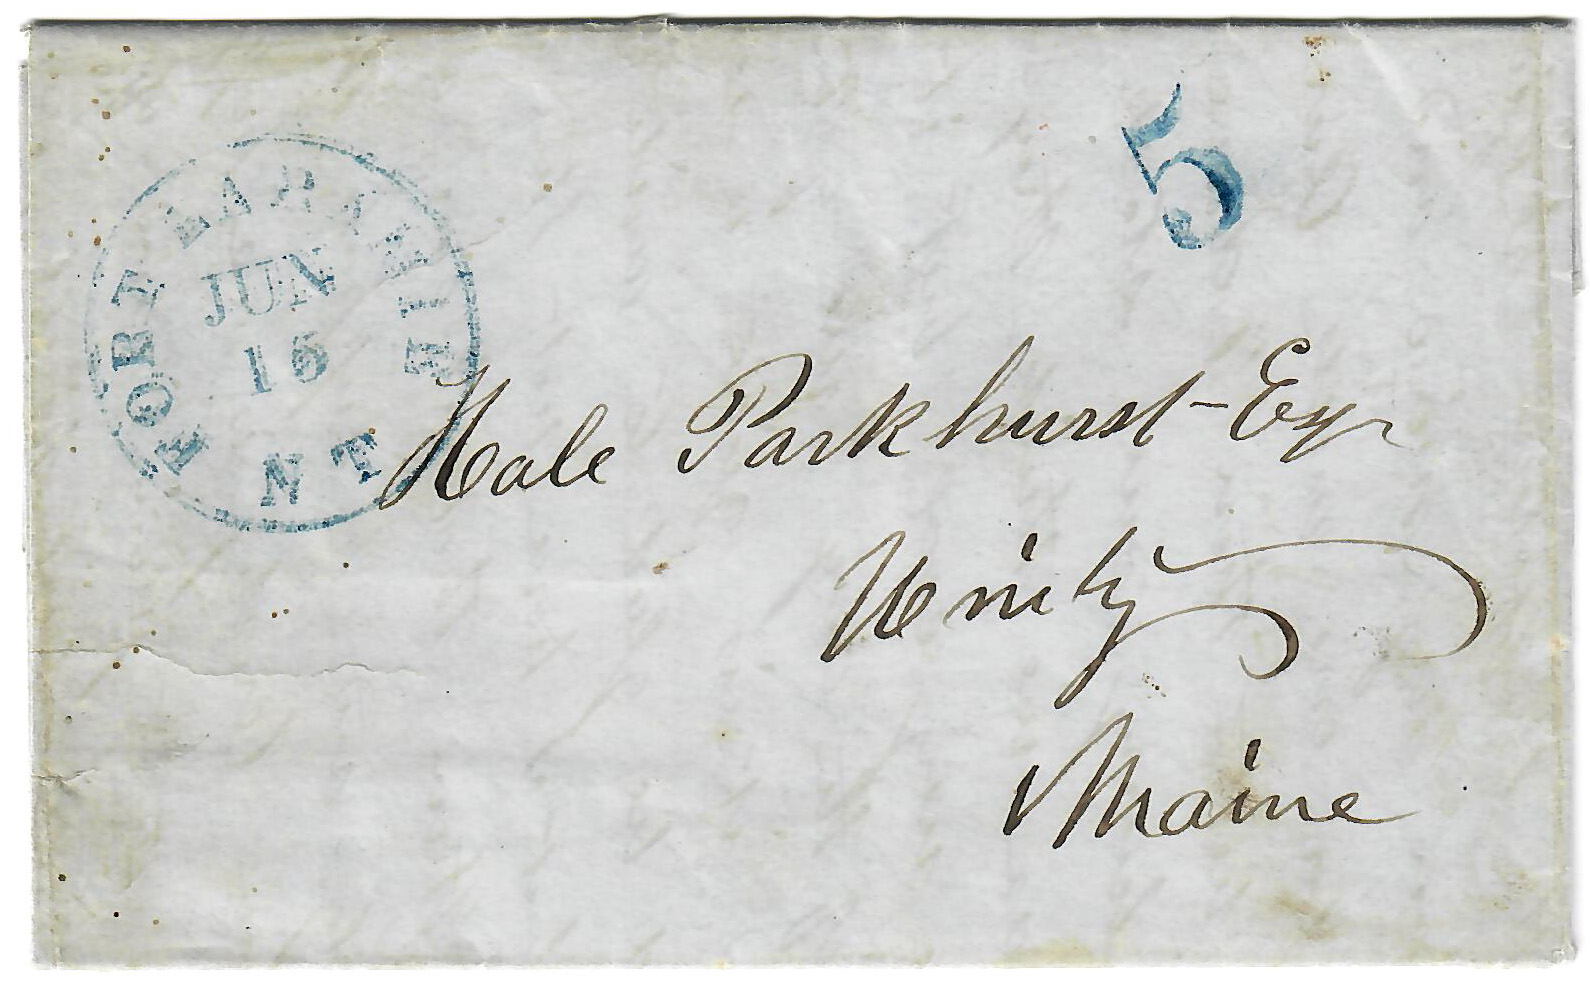 FORT LARAMIE
JUN
15
N T
5
Hale Parkhurst - Esqr
Unity
Maine